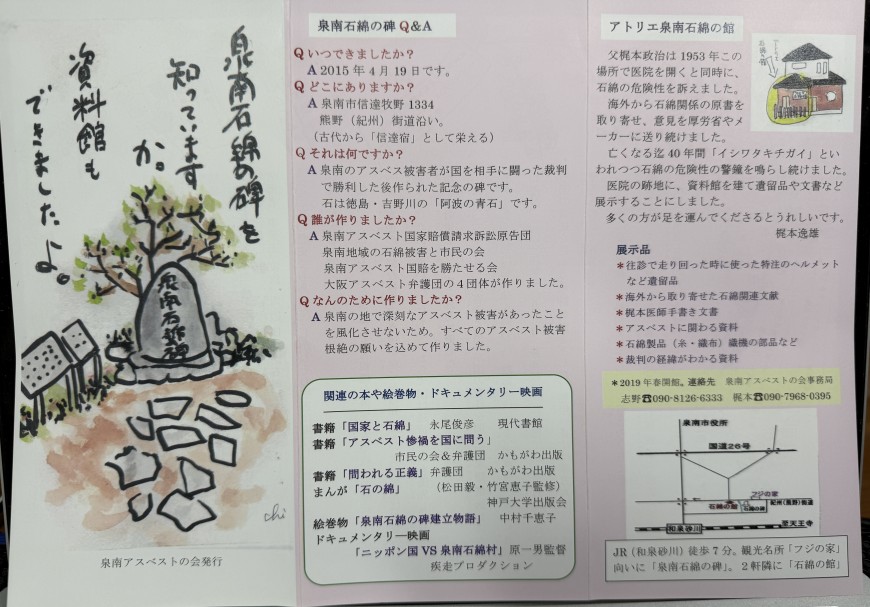 泉南石綿の碑を
知っています
か。
資料館も
できましたよ。
泉南石綿碑
chi
泉南アスベストの会発行
泉南石綿の碑 Q&A
Q いつできましたか?
A 2015 年 4 月 19 日です。
Q どこにありますか?
A 泉南市信達牧野 1334
熊野(紀州)街道沿い。
(古代から「信達宿」として栄える)
Q それは何ですか?
A 泉南のアスベス被害者が国を相手に闘った裁判
で勝利した後作られた記念の碑です。
石は徳島・吉野川の「阿波の青石」です。
Q 誰が作りましたか?
A 泉南アスベスト国家賠償請求訴訟原告団
泉南地域の石綿被害と市民の会
泉南アスベスト国賠を勝たせる会
大阪アスベスト弁護団の 4 団体が作りました。
Q なんのために作りましたか?
A 泉南の地で深刻なアスベスト被害があったこと
を風化させないため。すべてのアスベスト被害
根絶の願いを込めて作りました。
関連の本や絵巻物・ドキュメンタリー映画
書籍「国家と石綿」 永尾俊彦 現代書館
書籍「アスベスト惨禍を国に問う」
市民の会&弁護団 かもがわ出版
書籍「問われる正義」弁護団 かもがわ出版
まんが「石の綿」 (松田毅・竹宮恵子監修)
神戸大学出版会
絵巻物「泉南石綿の碑建立物語」 中村千恵子
ドキュメンタリー映画
「ニッポン国 VS 泉南石綿村」原一男監督
疾走プロダクション
アトリエ泉南石綿の館
父梶本政治は 1953 年この
場所で医院を開くと同時に、
石綿の危険性を訴えました。
海外から石綿関係の原書を
取り寄せ、意見を厚労省やメ
ーカーに送り続けました。
亡くなる迄 40 年間「イシワタキチガイ」とい
われつつ石綿の危険性の警鐘を鳴らし続けました。
医院の跡地に、資料館を建て遺留品や文書など
展示することにしました。
多くの方が足を運んでくださるとうれしいです。
梶本逸雄
展示品
*往診で走り回った時に使った特注のヘルメット
など遺留品
*海外から取り寄せた石綿関連文献
*梶本医師手書き文書
*アスベストに関わる資料
*石綿製品(糸・織布)織機の部品など
*裁判の経緯がわかる資料
*2019 年春開館。連絡先 泉南アスベストの会事務局
志野☎090-8126-6333 梶本☎090-7968-0395
泉南市役所
国道26号
フジの家
石綿の館
石綿の碑
紀州(熊野)街道
和泉砂川
至天王寺
JR(和泉砂川)徒歩 7 分。観光名所「フジの家」
向いに「泉南石綿の碑」。2 軒隣に「石綿の館」